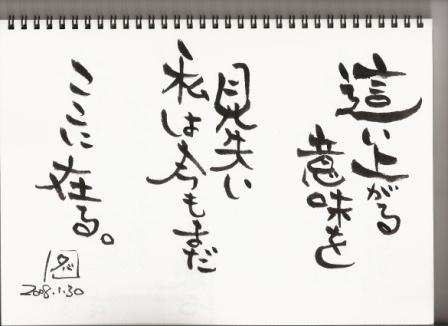 這い上がる
意味を
見失い
私は今もまだ
ここに在る。
2008.1.30